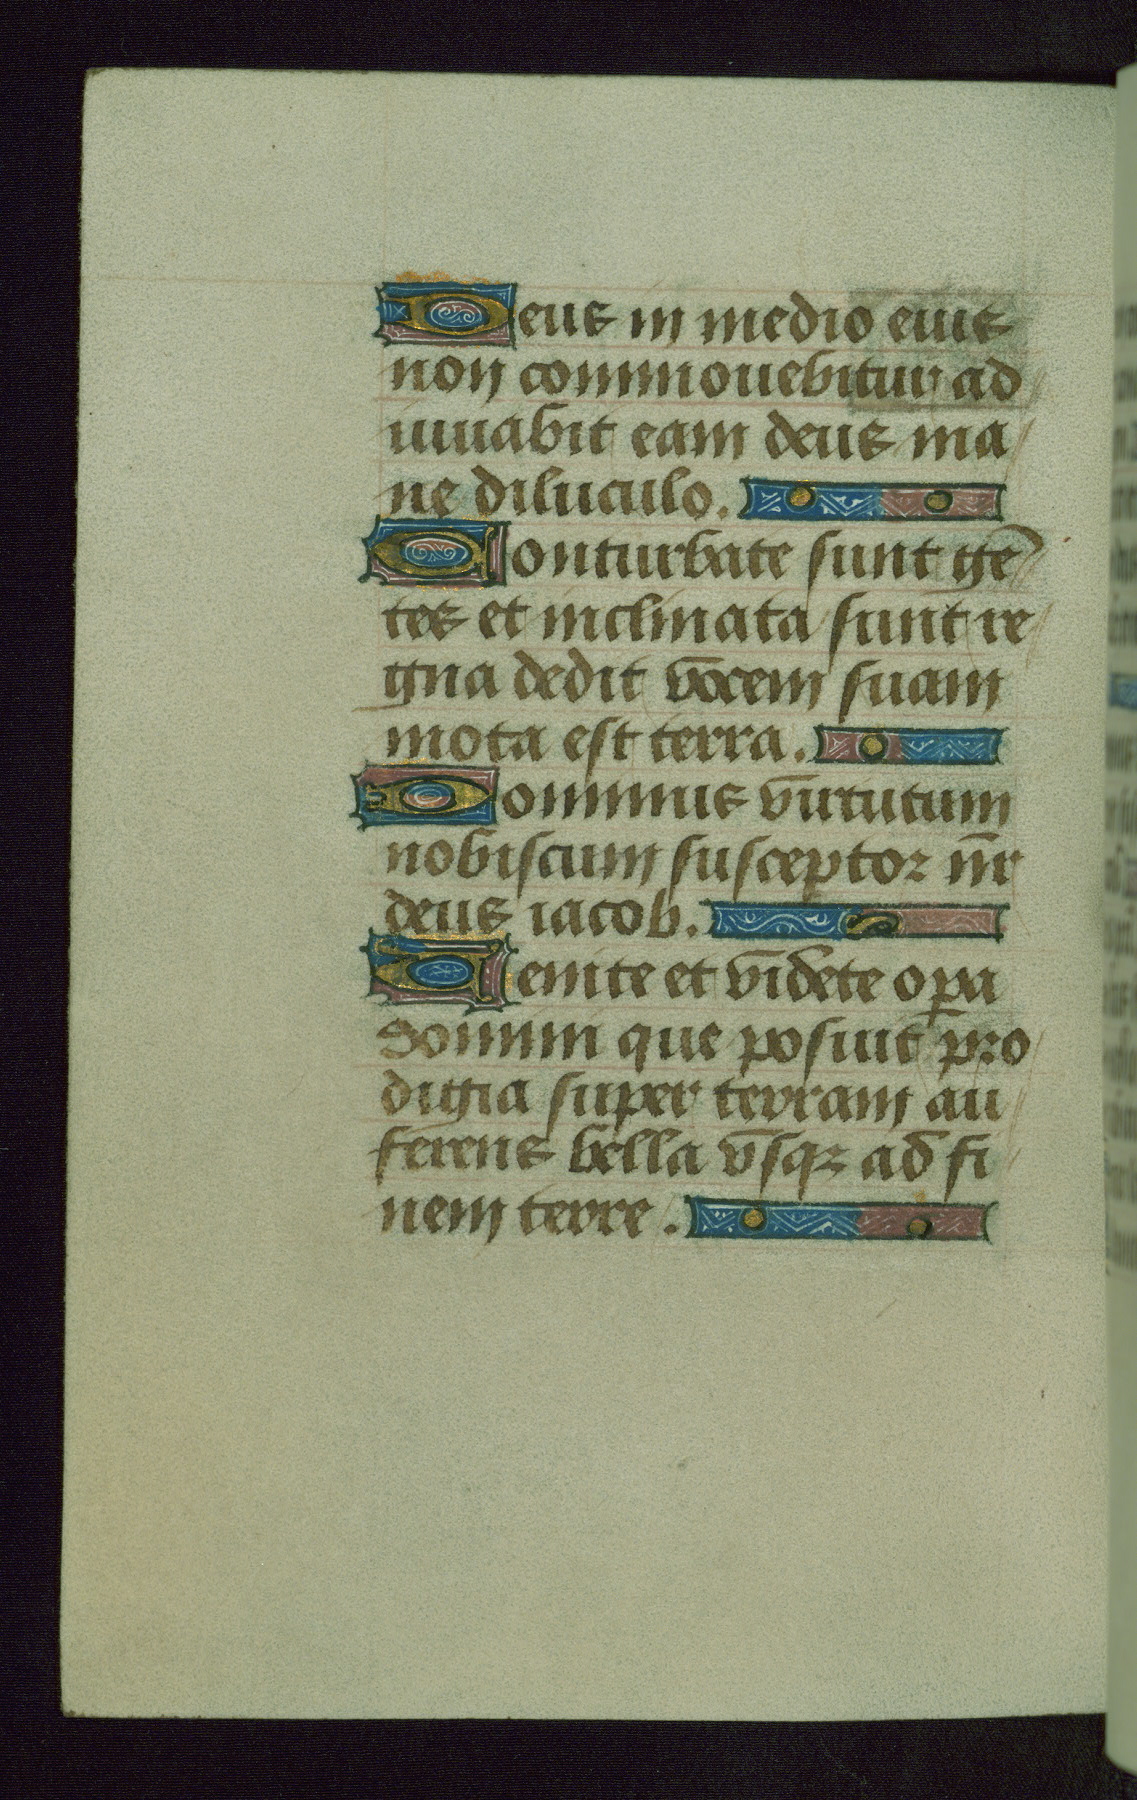 Deus in medio eius
non commouebitur ad
iuuabit eam deus ma
ne diluculo.
Conturbate sunt ge
tes et inclinata sunt re
gna dedit vocem suam
mota est terra.
Dominus virtutum
nobiscum susceptor nr̄
deus iacob.
Uenite et videte oꝑa
domini que posuit pro
digia super terram au
ferens bella vsqꝫ ad fi
nem terre.